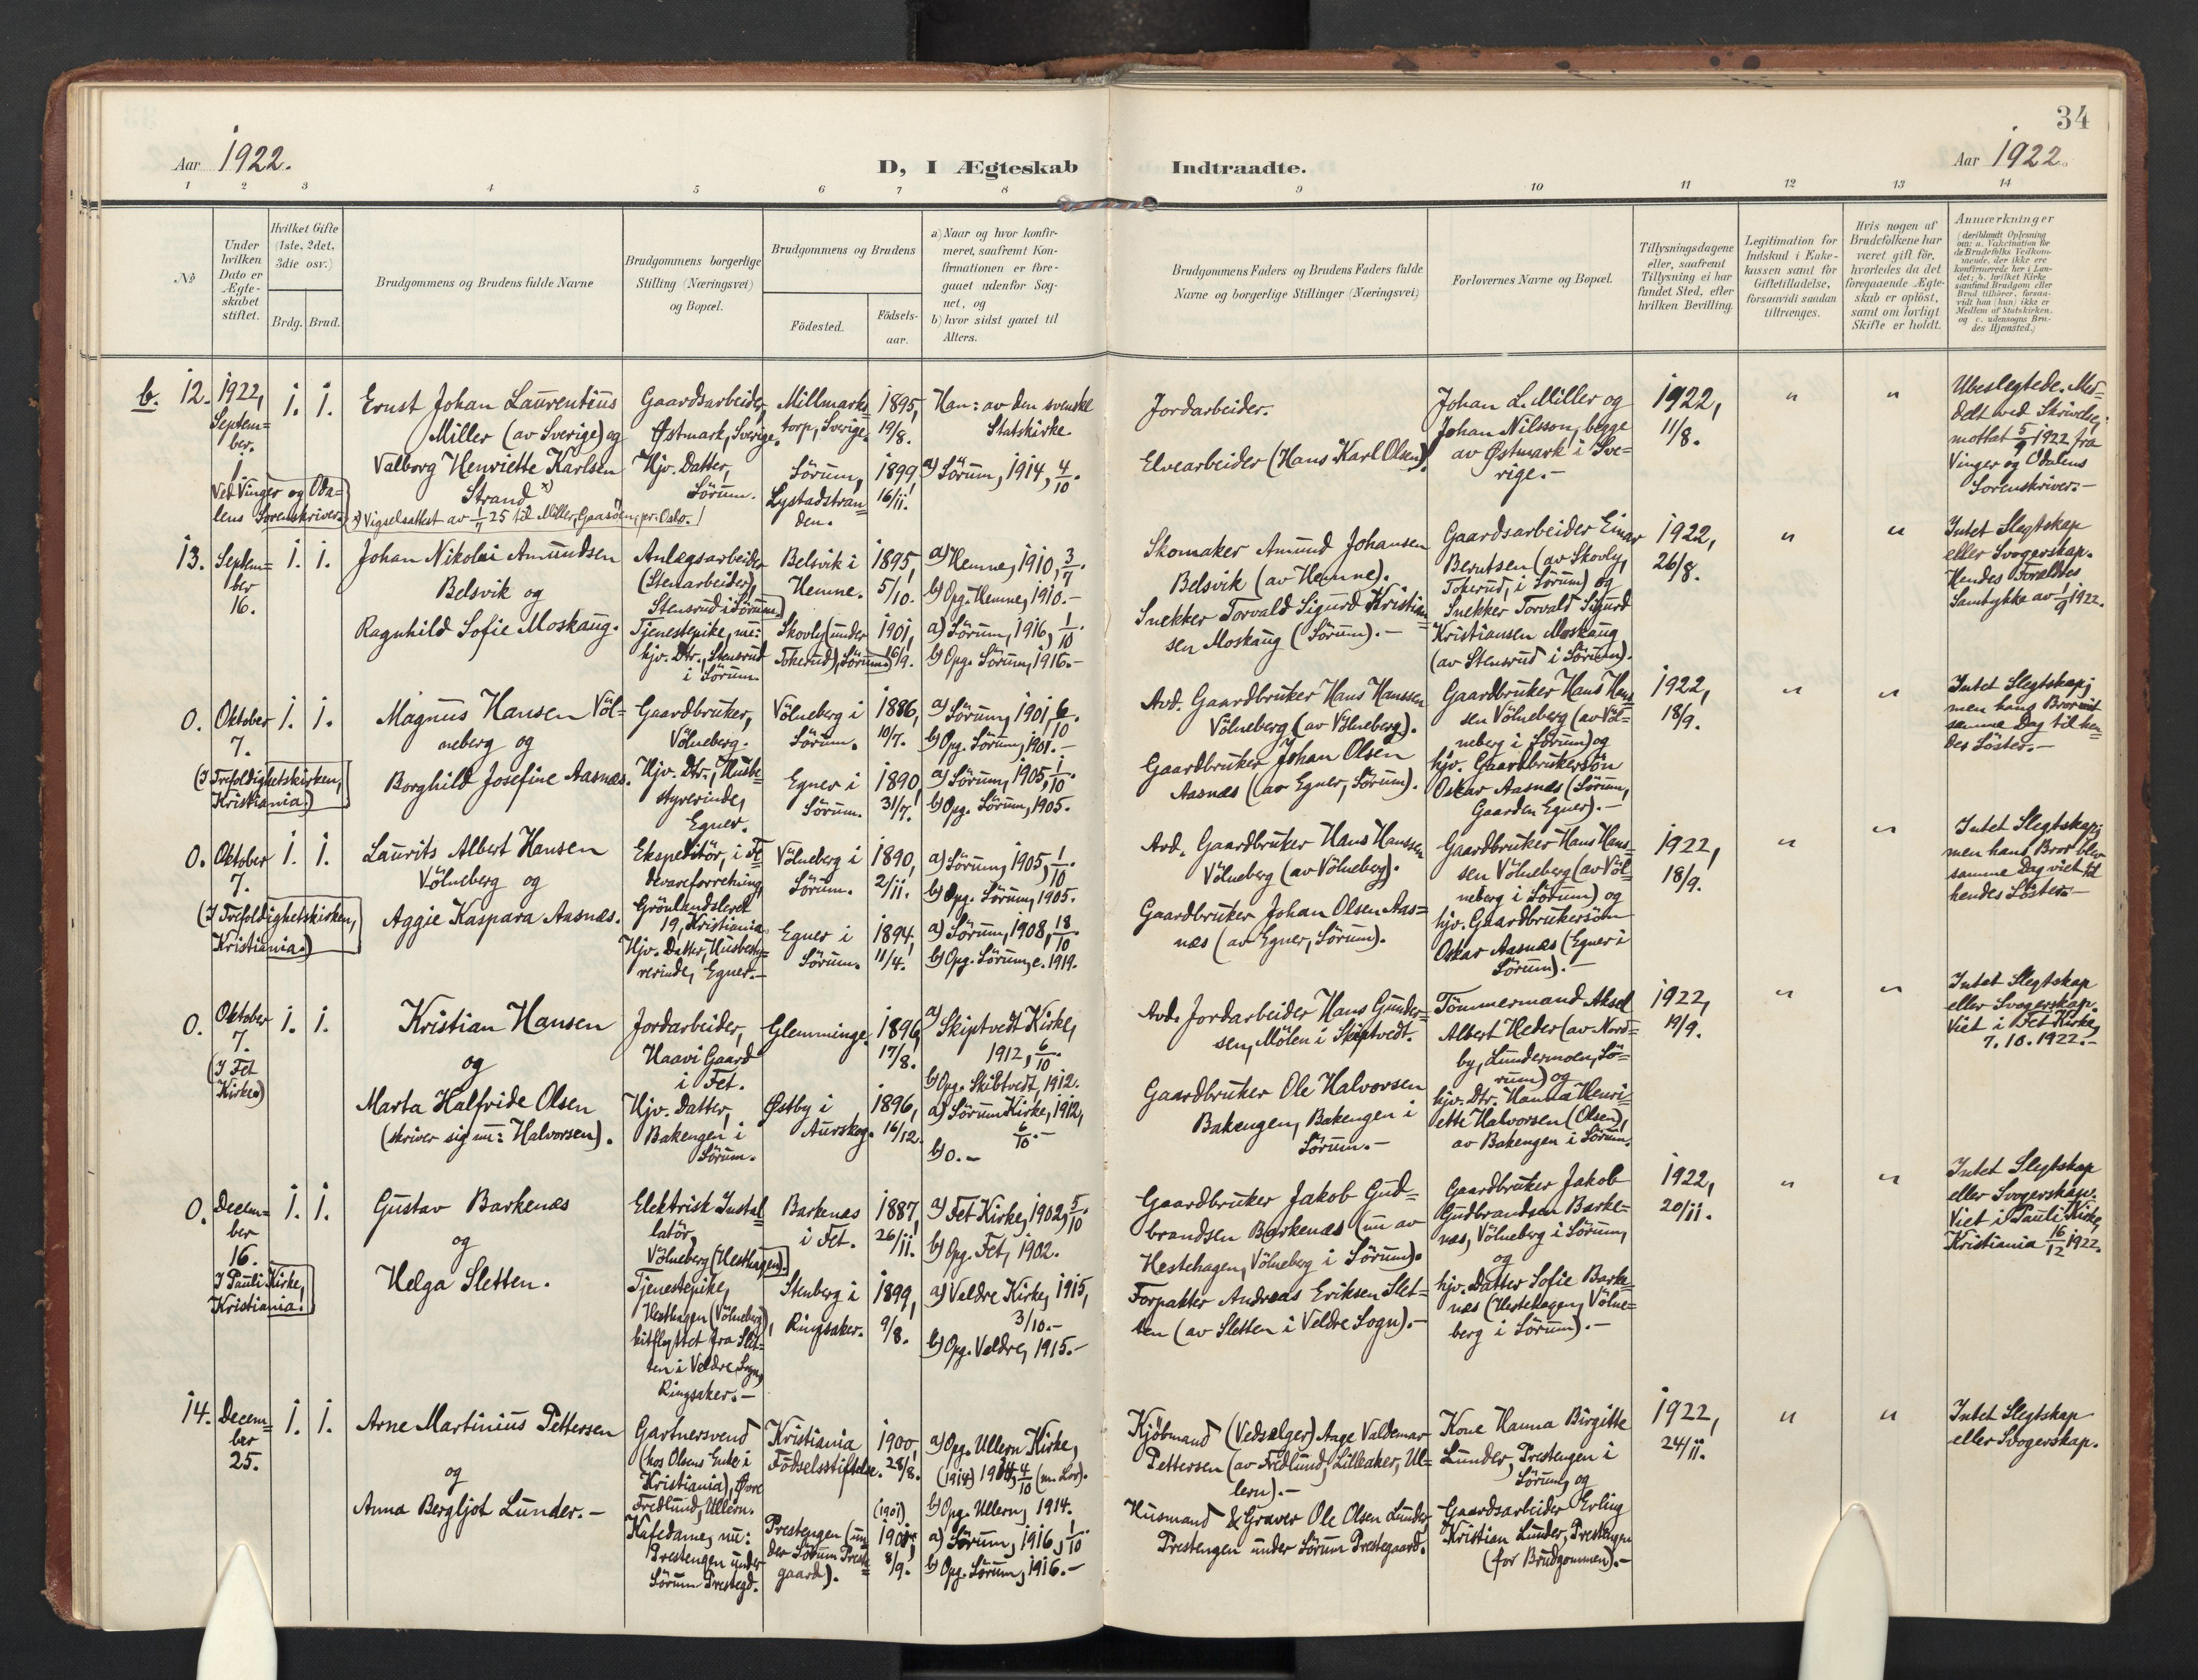 34
Aar 1922.
D, I Ægteskab Indtraadte.
Aar 1922.
1 2 3 4 5 6 7 8 9 10 11 12 13 14
No
Under
hvilken
Dato er
Ægte-
skabet
stiftet.
Hvilket Gifte
(1ste, 2det,
3die osv.)
Brdg. Brud.
Brudgommens og Brudens fulde Navne
Brudgommens borgerlige
Stilling (Næringsvei)
og Bopæl.
Brudgommens og Brudens
Födested.
Födsels-
aar.
a) Naar og hvor konfir-
meret, saafremt Kon-
firmationen er fore-
gaaet udenfor Sog-
net, og
b) hvor sidst gaaet til
Alters.
Brudgommens Faders og Brudens Faders fulde
Navne og borgerlige Stillinger (Næringsvei)
Forlovernes Navne og Bopæl.
Tillysningsdagene
eller, saafremt
Tillysning ei har
fundet Sted, efter
hvilken Bevilling.
Legitimation for
Indskud i Enke-
kassen samt for
Giftetilladelse,
forsaavidt saadan
tiltrænges.
Hvis nogen af
Brudefolkene har
været gift før,
hvorledes da det
foregaaende Ægte-
skab er opløst,
samt om lovligt
Skifte er holdt.
Anmerkninger
(deriblandt Oplysning
om: a. Vakcination for
de Brudefolks Vedkom-
mende, der ikke ere
konfirmerede her i Lan-
det; b. hvilket Kirke
samfund Brudgom eller
Brud tilhører, forsaa-
vidt han (hun) ikke er
Medlem af Statskirken.
og c. udensogns Bru-
des Hjemsted.)
b. 12. 1922,
Septem=
ber.
1.
Ved Vinger og Oda=
lens Sorenskriver.
1. 1.
Ernst Johan Laurentius
Miller (av Sverige) og
Valborg Henriette Karlsen
Strand x)
x) Vigselsattest av 1/7 25 til Miller, Gaasöen, pr. Oslo. /
Gaardsarbeider,
Østmark, Sverige.
Hjv. Datter,
Sörum.
Millmarks=
torp, Sverige.
Sörum,
Lystadstran=
den.
1895,
19/8.
1899,
16/11.
Han: av den svenske
Statskirke.
a) Sörum, 1914, 4/10.
Jordarbeider.
Elvearbeider (Hans Karl Olsen).
Johan L. Miller og
Johan Nilsson, begge
av Østmark i Sve=
rige.-
1922,
11/8.
" "
Ubeslegtede. Med=
delt ved Skrivelse,
mottat 5/9 1922 fra
Vinger og Odalens
Sorenskriver.-
13. Septem=
ber
16.
1. 1.
Johan Nikolai Amundsen
Belsvik og
Ragnhild Sofie Moskaug.
Anlægsarbeider
(Stenarbeider),
Stensrud i Sörum.
Tjenestepike, nu:
hjv. Dtr., Stensrud
i Sörum.
Belsvik i
Hemne.
Skovly (under
Tokerud), Sörum.
1895,
5/10.
1901,
16/9.
a) Hemne, 1910, 3/7.
b) Opg. Hemne, 1910.-
a) Sörum, 1916, 1/10.
b) Opg. Sörum, 1916.-
Skomaker Amund Johansen
Belsvik (av Hemne).
Snekker Torvald Sigurd Kristian=
sen Moskaug (Sörum).-
Gaardsarbeider Einar
Berntsen (av Skovly,
Tokerud, i Sörum) og
Snekker Torvald Sigurd
Kristiansen Moskaug
(av Stensrud i Sörum).
1922,
26/8.
" "
Intet Slegtskap
eller Svogerskap.
Hendes Forældres
Samtykke av 1/9 1922.
0. Oktober
7.
(I Trefoldighetskirken,
Kristiania.)
1. 1.
Magnus Hansen Völ=
neberg og
Borghild Josefine Aasnæs.
Gaardbruker,
Völneberg.
Hjv. Dtr., Husbe=
styrerinde,
Egner.
Völneberg i
Sörum.
Egner i
Sörum.
1886,
10/7.
1890,
31/7.
a) Sörum, 1901, 6/10.
b) Opg. Sörum, 1901.-
a) Sörum, 1905, 1/10.
b) Opg. Sörum, 1905.
Avd. Gaardbruker Hans Hanssen
Völneberg (av Völneberg).
Gaardbruker Johan Olsen
Aasnæs (av Egner, Sörum).
Gaardbruker Hans Hans
sen Völneberg (av Völ=
neberg i Sörum) og
hjv. Gaardbrukersön
Oskar Aasnæs (Sörum,
Gaarden Egner).-
1922,
18/9.
" "
Intet Slegtskap;
men hans Bror viet
samme Dag til hen=
des Söster.-
0. Oktober
7.
(I Trefoldighetskirken,
Kristiania.)
1. 1.
Laurits Albert Hansen
Völneberg og
Aggie Kaspara Aasnæs.
Ekspeditör, i Fe=
devareforretning,
Grönlandsleret
19, Kristiania.
Hjv. Datter, Husbesty=
rerinde, Egner.-
Völneberg i
Sörum.
Egner i
Sörum.
1890,
2/11.
1894,
11/4.
a) Sörum, 1905, 1/10.
b) Opg. Sörum, 1905.
a) Sörum, 1908, 18/10.
b) Opg. Sörum, c. 1919.
Avd. Gaardbruker Hans Hanssen
Völneberg (av Völneberg).
Gaardbruker Johan Olsen Aas=
næs (av Egner, Sörum).
Gaardbruker Hans Hans=
sen Völneberg (av Völ=
neberg i Sörum) og
hjv. Gaardbrukersön
Oskar Aasnæs (Egner i
Sörum).-
1922,
18/9.
" "
Intet Slegtskap;
men hans Bror blev
samme Dag viet til
hendes Söster.-
0. Oktober
7.
(I Fet
Kirke)
1. 1.
Kristian Hansen
og
Marta Halfride Olsen
(skriver sig nu: Halvorsen).
Jordarbeider,
Haavi Gaard
i Fet.
Hjv. Datter,
Bakengen i
Sörum.
Glemminge.
Østby i
Aurskog.
1896,
17/8.
1896,
16/12.
a) Skiptvedt Kirke,
1912, 6/10.
b) Opg. Skibtvedt, 1912.
a) Sörum Kirke, 1912,
6/10.-
b) 0.-
Avd. Jordarbeider Hans Gunder=
sen, Mölen i Skiptvedt.
Gaardbruker Ole Halvorsen
Bakengen, Bakengen i
Sörum.-
Tömmermand Aksel
Albert Heder (av Nord=
by, Lundermoen, Sö=
rum) og
hjv. Dtr. Hanna Henri=
ette Halvorsen (Olsen),
av Bakengen i Sörum.
1922,
19/9.
" "
Intet Slegtskap
eller Svogerskap.
Viet i Fet Kirke,
7.10.1922.-
0. Decem=
ber
16.
I Pauli Kirke,
Kristiania.
1. 1.
Gustav Barkenæs
og
Helga Sletten.
Elektrisk Instal=
latör,
Völneberg (Hesthagen).
Tjenestepike,
Hesthagen (Völneberg),
hitflyttet fra Slet=
ten i Veldre Sogn,
Ringsaker.-
Barkenæs
i Fet.
Stenberg i
Ringsaker.
1887,
26/11.
1899,
9/8.
a) Fet Kirke, 1902, 5/10.
b) Opg. Fet, 1902.
a) Veldre Kirke, 1915,
3/10.-
b) Opg. Veldre, 1915.-
Gaardbruker Jakob Gud=
brandsen Barkenæs (nu av
Hestehagen, Völneberg i Sörum).
Forpakter Andreas Eriksen Slet=
ten (av Sletten i Veldre Sogn).-
Gaardbruker Jakob
Gudbrandsen Barke=
næs, Völneberg i Sörum,
og
hjv. Datter Sofie Barke=
næs (Hestehagen, Völne=
berg i Sörum).-
1922,
20/11.
" "
Intet Slegtskap
eller Svogerskap.
Viet i Pauli Kirke,
Kristiania 16/12 1922.
14. Decem=
ber
25.
1. 1.
Arne Martinius Pettersen
og
Anna Bergljot Lunder.-
Gartnersvend
(hos Olsens Enke i
Kristiania), Øvre
Fredlund, Ullern.
Kafedame, nu:
Prestengen under
Sörum Prestegd.
Kristiania
Födselsstiftelse.
Prestengen (un
der Sörum Preste=
gaard).
1900,
28/8.
(1901)
1901,
8/9.
a) Opg. Ullern Kirke,
(1914) 1914, 4/10 (m. Lov).
b) Opg. Ullern, 1914.
a) Sörum, 1916, 1/10
b) Opg. Sörum, 1916.-
Kjöbmand (Vedsælger) Aage Valdemar
Pettersen (av Fredlund, Lilleaker, Ul=
lern).-
Husmand & Graver Ole Olsen Lunder,
Prestengen under Sörum Prestegaard.
Kone Hanna Birgitte
Lunder, Prestengen i
Sörum, og
Gaardsarbeider Erling
Kristian Lunder, Prestengen
(for Brudgommen).-
1922,
24/11.
" "
Intet Slegtskap
eller Svogerskap.